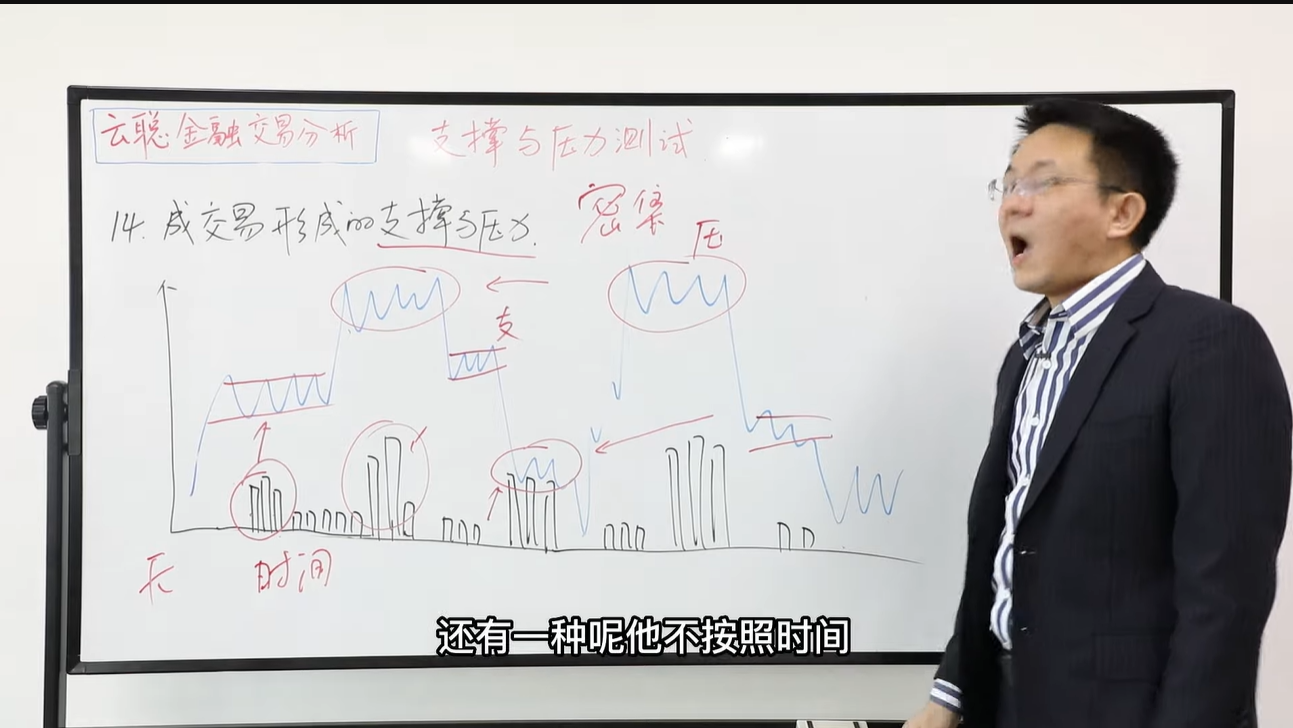 云聪金融交易分析
支撑与压力测试
14. 成交易形成的支撑与压力.
密集
压
支
长 时间
还有一种呢他不按照时间